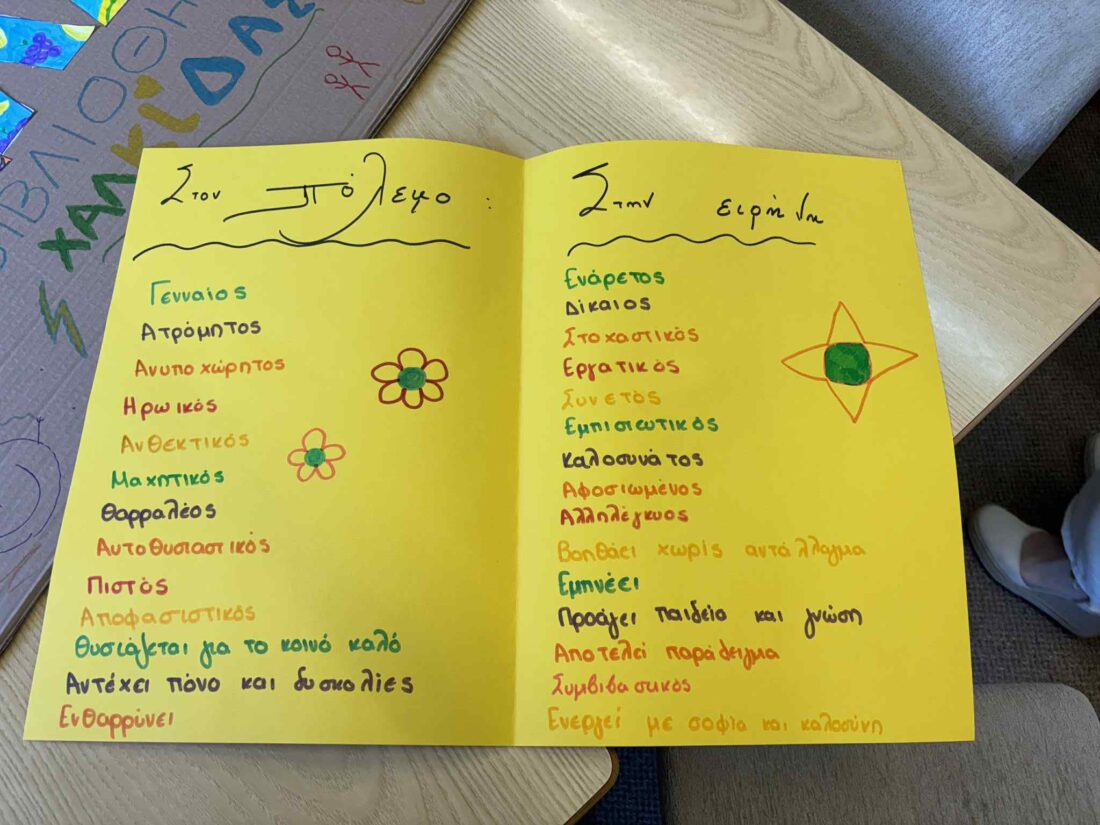 ΒΙΒΛΙΟΘΗ
ΧΑΛΚίΔΑΣ
Στον πόλεμο :
Γενναίος
Ατρόμητος
Ανυποχώρητος
Ηρωικός
Ανθεκτικός
Μαχητικός
Θαρραλέος
Αυτοθυσιαστικός
Πιστός
Αποφασιστικός
Θυσιάζεται για το κοινό καλό
Αντέχει πόνο και δυσκολίες
Ενθαρρύνει
Στην ειρήνη
Ενάρετος
Δίκαιος
Στοχαστικός
Εργατικός
Συνετός
Εμπισιωτικός
Καλοσυνάτος
Αφοσιωμένος
Αλληλέγκυος
Βοηθάει χωρίς αντάλλαγμα
Εμπνέει
Προάγει παιδεία και γνώση
Αποτελεί παράδειγμα
Συμβιβασικός
Ενεργεί με σοφία και καλοσύνη